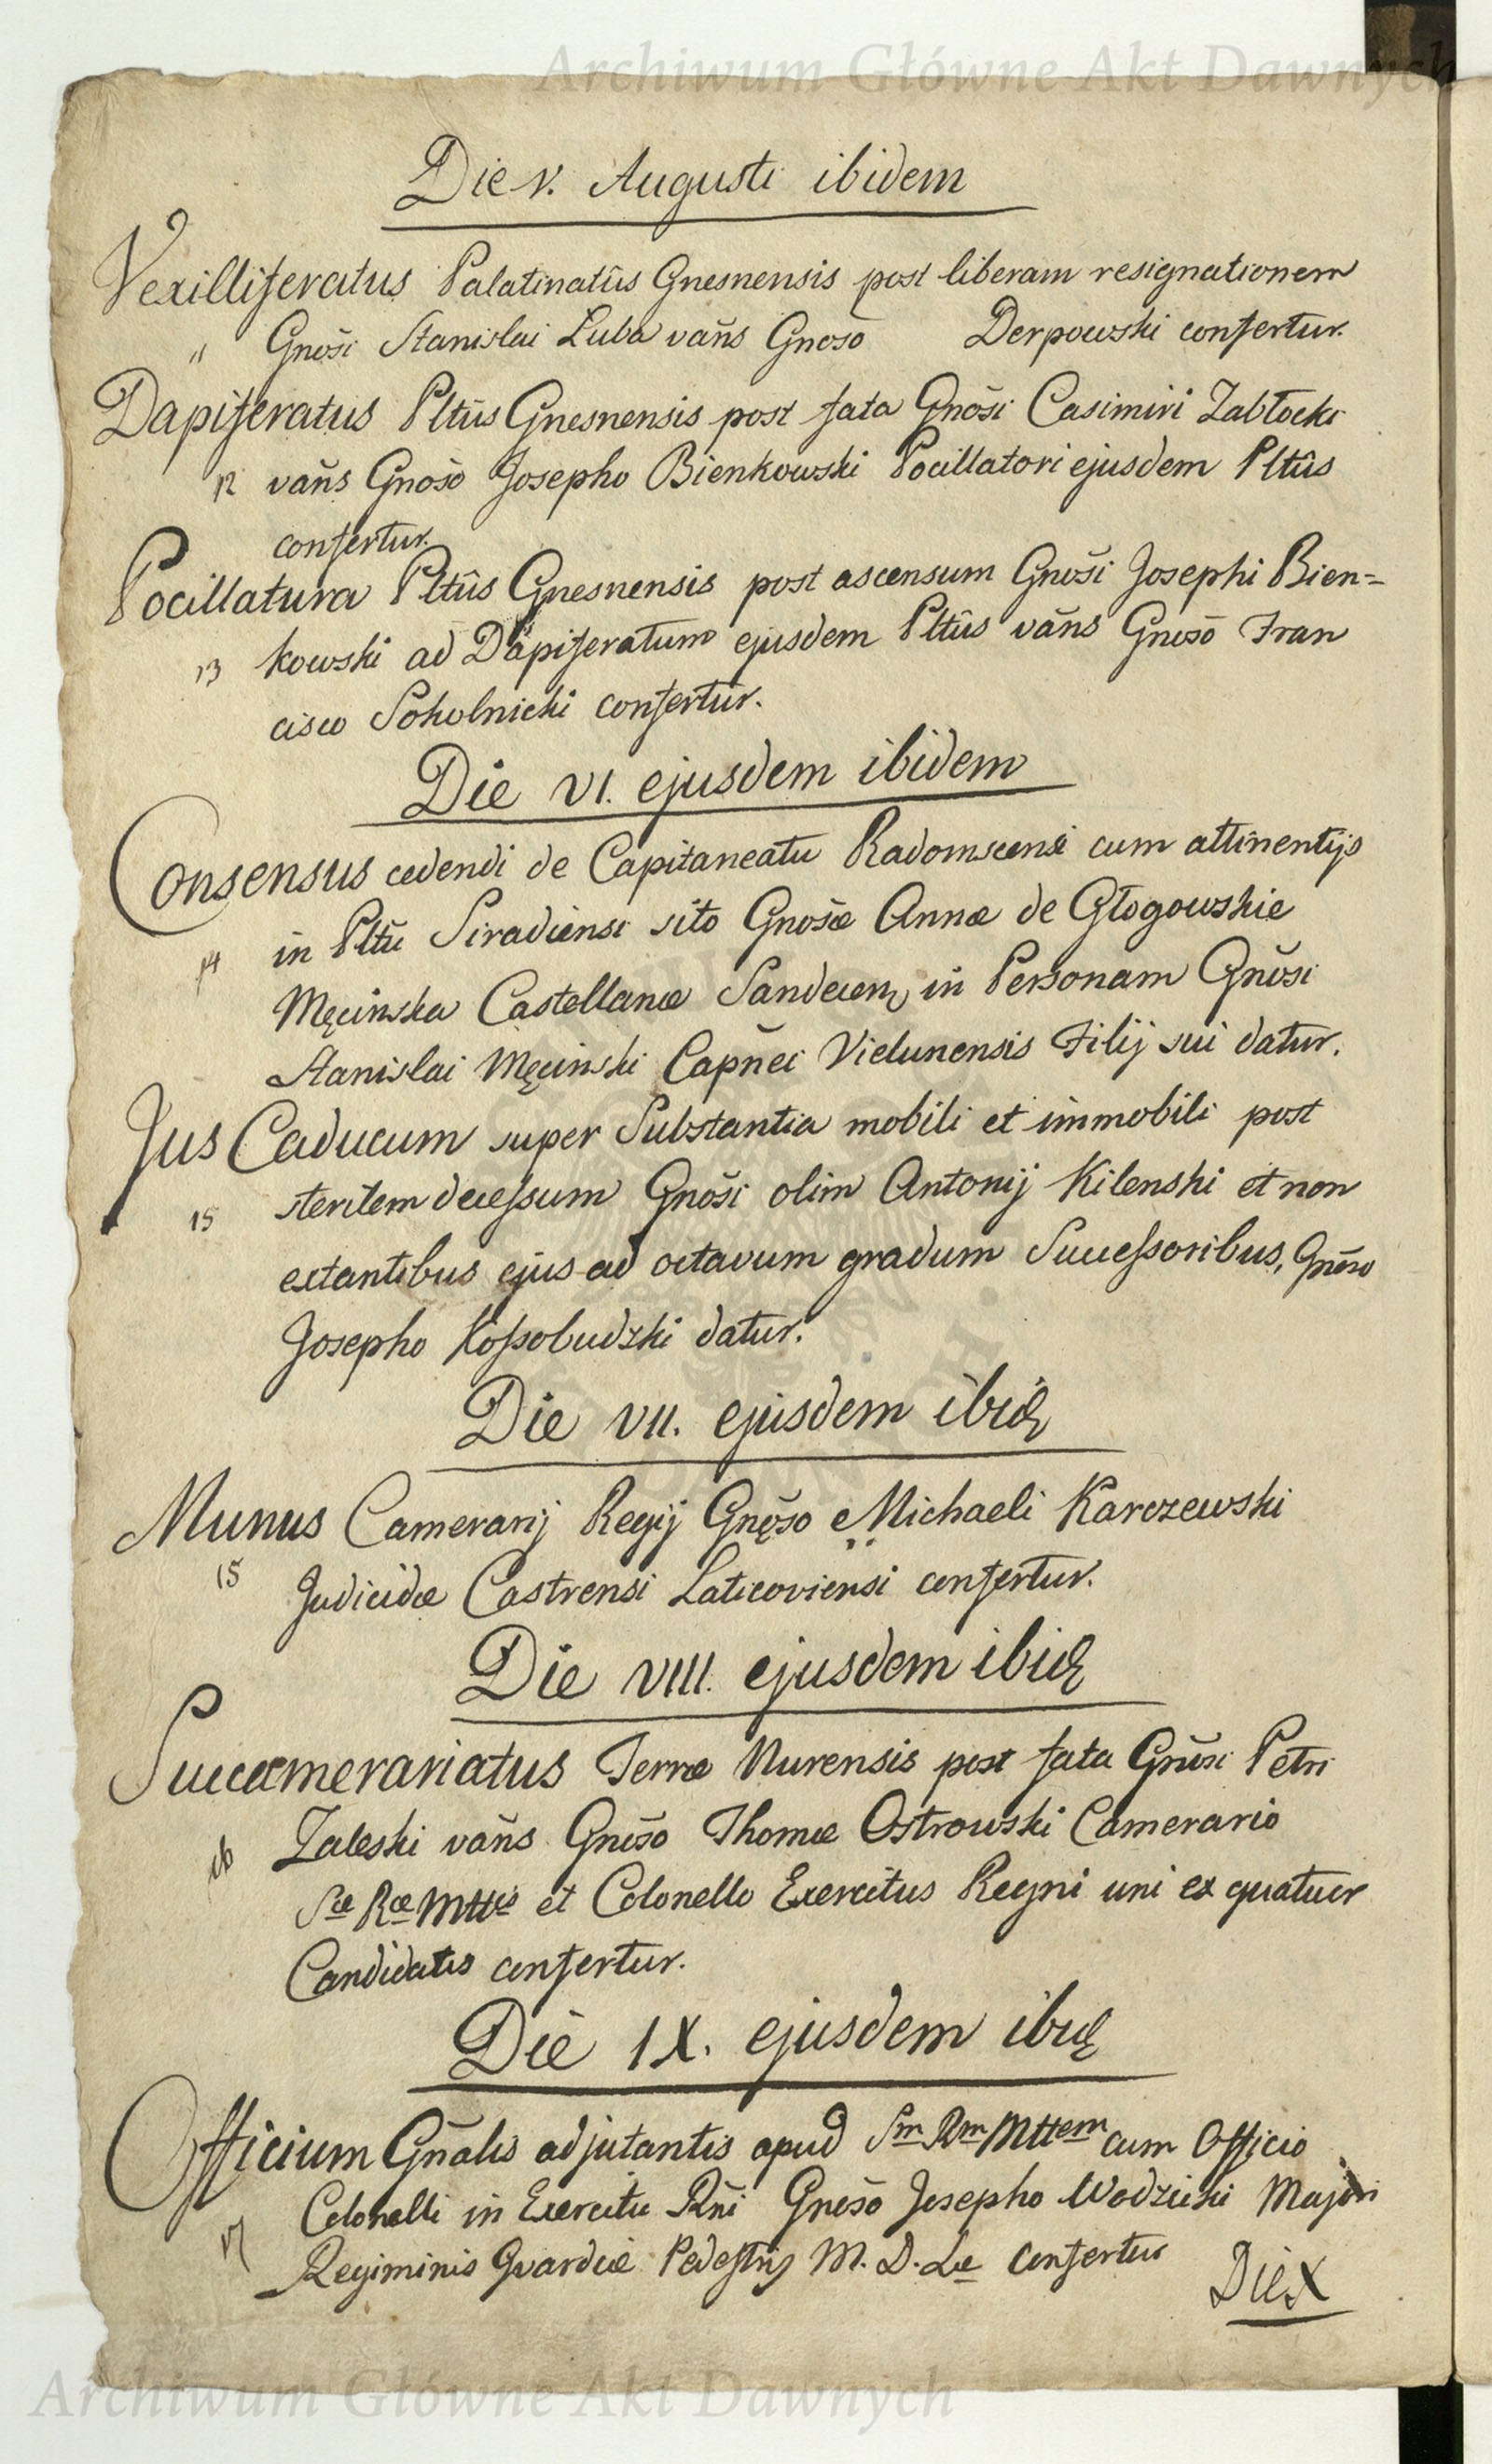 Archiwum Główne Akt Dawnych
Die v. Augusti ibidem
Vexilliferatus Palatinatûs Gnesnensis post liberam resignationem
11 Gnõsi Stanislai Luba vañs Gnoso Derpowski confertur.
Dapiferatus Pltûs Gnesnensis post fata Gnõsi Casimiri Zabłocki
12 vañs Gnõso Josepho Bienkowski Pocillatori ejusdem Pltûs
confertur.
Pocillatura Pltûs Gnesnensis post ascensum Gnõsi Josephi Bien=
13 kowski ad Dapiferatum ejusdem Pltûs vañs Gnoso Fran
cisco Sokolnicki confertur.
Die VI. ejusdem ibidem
Consensus cedendi de Capitaneatu Radomscensi cum attinentijs
14 in Pltu Siradiensi sito Gnosæ Annæ de Głogowskie
Męcinska Castellanæ Sandecen in Personam Gnõsi
Stanislai Męcinski Capñei Vielunensis Filij sui datur.
Jus Caducum super Substantia mobili et immobili post
15 sterilem decessum Gnõsi olim Antonij Kilenski et non
extantibus ejus ad octavum gradum Successoribus, Gnõso
Josepho Kossobudzki datur.
Die VII. ejusdem ibid
Munus Camerarij Regij Gnõso Michaeli Karczewski
15 Judicidæ Castrensi Laticoviensi confertur.
Die VIII. ejusdem ibid
Succamerariatus Terræ Nurensis post fata Gnõsi Petri
16 Zaleski vañs Gnõso Thomæ Ostrowski Camerario
Sæ Ræ Mttis et Colonello Exercitus Regni uni ex quatuor
Candidatis confertur.
Die IX. ejusdem ibid
Officium Gñalis adjutantis apud Sm Rm Mttem cum Officio
17 Colonelli in Exercitu Rñi Gnõso Josepho Wodzicki Majori
Regiminis Gvardiæ Pedestris M. D. Læ confertur
Die X
Archiwum Główne Akt Dawnych